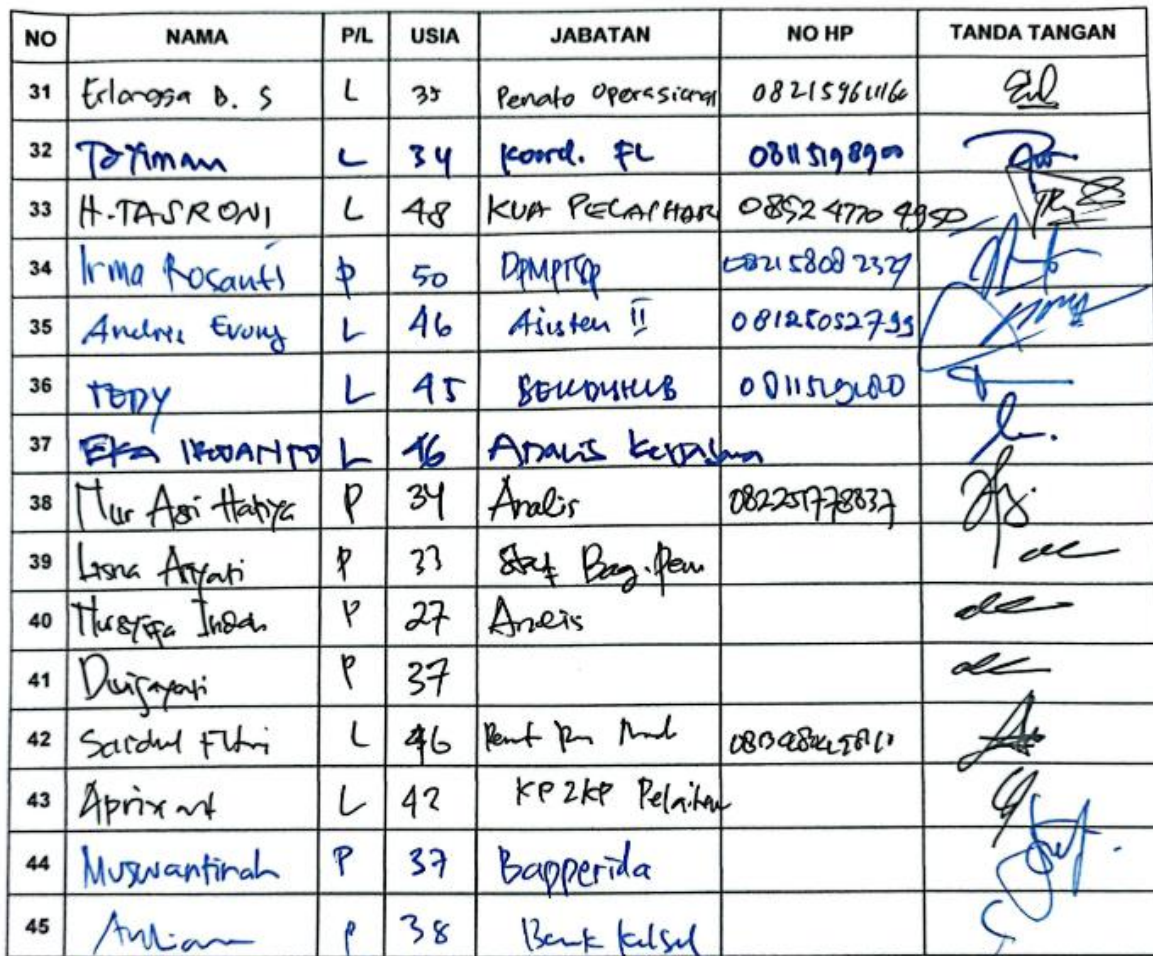 NO NAMA P/L USIA JABATAN NO HP TANDA TANGAN
31 Erlangga D. S L 35 Penata Operasional 082159611160
32 Tayiman L 34 Koord. FL 08115198900
33 H. TASRONI L 48 KUA PELAIHARI 0852 4770 4950
34 Irma Rosanti P 50 DPMPTSP 082158082327
35 Andris Evony L 46 Asisten II 08125052799
36 TEDY L 45
37 EKA L 46 Analis Kerjasama
38 Nur Asri Hatiya P 34 Analis 082251778837
39 Lisna Ariyati P 33 Staf Bag. Pem
40 Nursyifa Indah P 27 Analis
41 Dwijayati P 37
42 Saidul Fitri L 46
43 Aprixant L 42 KP2KP Pelaihari
44 Muswantinah P 37 Bapperida
45 P 38 Bank Kalsel